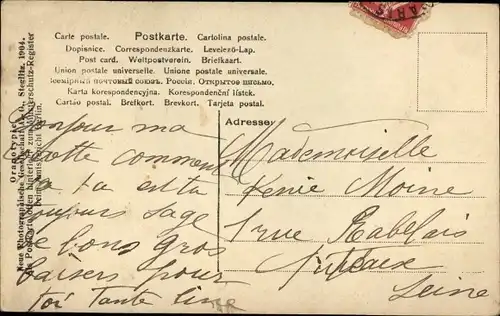 Carte postale. Postkarte. Cartolina postale.
Dopisnice. Correspondenzkarte. Levelező-Lap.
Post card. Weltpostverein. Briefkaart.
Union postale universelle. Unione postale universale.
Всемірный почтовый союзъ. Россія. Открытое письмо.
Karta korespondencyjna. Korespondenční lístek.
Cartão postal. Brefkort. Brevkort. Tarjeta postal.
Oranotypie
Neue Photographische Gesellschaft A.G., Steglitz 1904.
Adresse:
Mademoiselle
Renée Moine
1 rue Rabelais
Puteaux
Seine
Bonjour ma
comment
ta
toujours sage
de bons gros
baisers pour
toi Tante Line